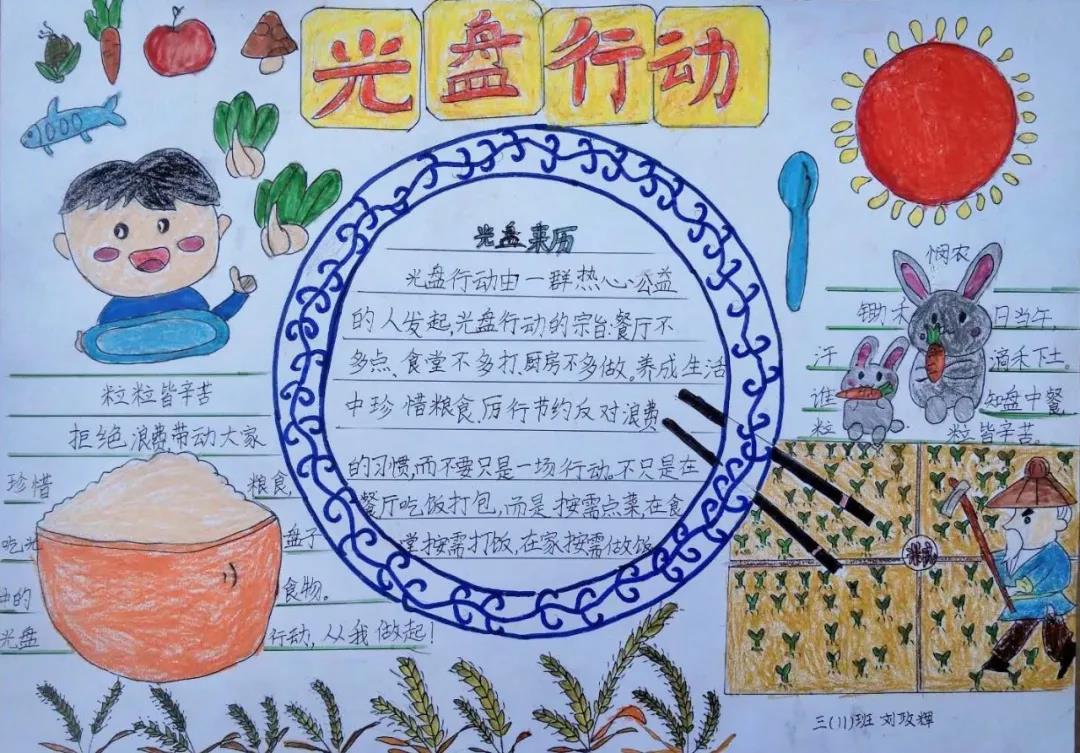 光盘行动
光盘来历
光盘行动由一群热心公益
的人发起,光盘行动的宗旨:餐厅不
多点、食堂不多打.厨房不多做。养成生活
中珍惜粮食,厉行节约反对浪费
的习惯,而不要只是一场行动。不只是在
餐厅吃饭打包,而是按需点菜,在食
堂按需打饭,在家按需做饭
粒粒皆辛苦
拒绝浪费,带动大家
珍惜 粮食,
吃光 盘子
中的 食物。
光盘 行动,从我做起!
悯农
锄禾 日当午,
汗 滴禾下土.
谁 知盘中餐,
粒 粒皆辛苦。
三(11)班 刘政辉